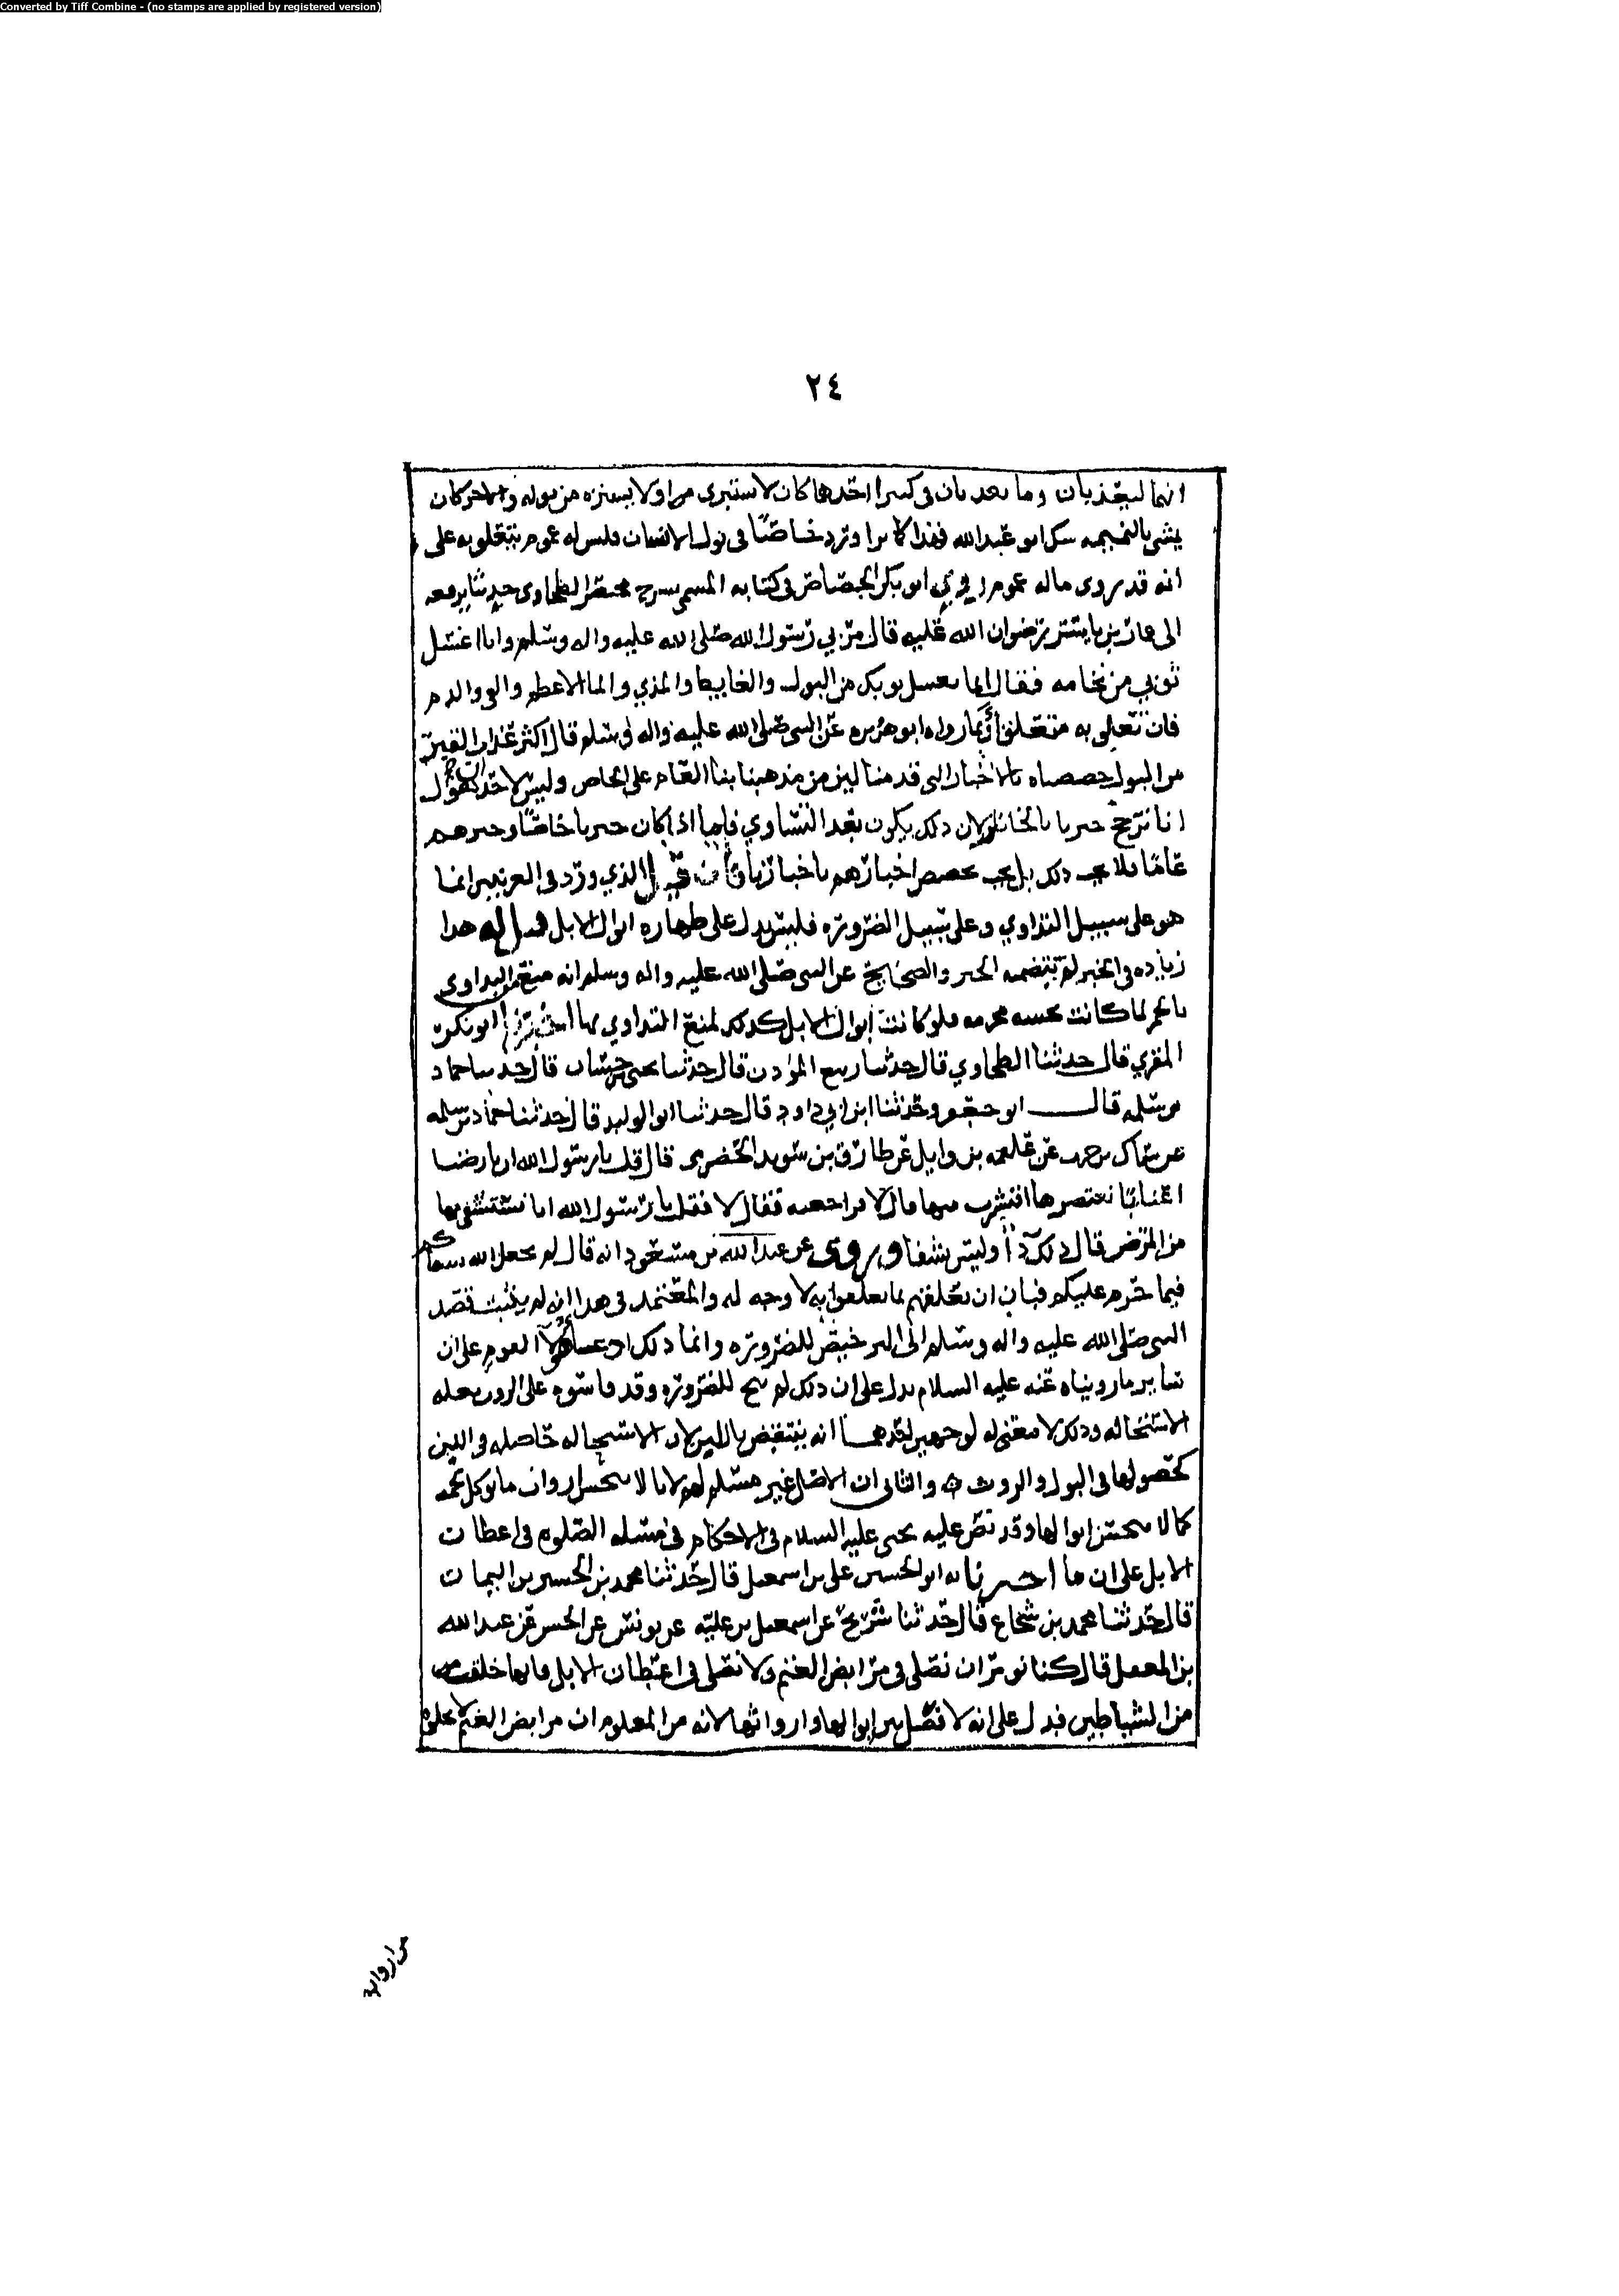 Converted by Tiff Combine - (no stamps are applied by registered version)
٢٤
انهما ليعذبان وما يعذبان في كبير احدهما كان لا يستبري من ولا يستنزه من بوله والاخر كان
يمشي بالنميمه ابو عبد الله فهذا كما ترا ورد خاصا في بول الانسان فليس له عموم يتعلق به على
انه قد روى ماله عموم ابو بكر الجصاص في كتابه المسمى بشرح مختصر الطحاوي حديثا يرفعه
الى عمار بن ياسر رضوان الله عليه قال مر بي رسول الله صلى الله عليه واله وسلم وانا اغسل
ثوبي من نخامه فقال انما يغسل ثوبك من البول والغايط والمذي والما الاعظم والقي والدم
فان تعلق به متعلق او بما رواه ابو هريره عن النبي صلى الله عليه واله وسلم قال اكثر عذاب القبر
من البول خصصناه بالاخبار التي قدمنا لان من مذهبنا بنا العام على الخاص وليس لاحد ان يقول
انا نرجح خبرنا لان ذلك يكون بعد التساوي فاما اذا كان خبرنا خاصا وخبرهم
عاما فلا يجب ذلك بل يجب تخصيص اخبارهم باخبارنا الذي ورد في العرنيين انما
هو على سبيل التداوي وعلى سبيل الضروره فليس يدل على طهاره ابوال الابل قيل له هذا
زياده في الخبر لم يتضمنه الخبر والصحيح عن النبي صلى الله عليه واله وسلم انه منع من التداوي
بالخمر لما كانت نجسه محرمه فلو كانت ابوال الابل كذلك لمنع التداوي بها ابو بكر
المقري قال حدثنا الطحاوي قال حدثنا ربيع المؤذن قال حدثنا يحيى بن حسان قال حدثنا حماد
بن سلمه قال ابو جعفر وحدثنا ابن ابي داود قال حدثنا ابو الوليد قال حدثنا حماد بن سلمه
عن سماك بن حرب عن علقمه بن وايل عن طارق بن سويد الحضرمي قال قلت يا رسول الله ان بارضنا
اعنابا نعتصرها افنشرب منها قال لا فراجعته فقال لا فقلت يا رسول الله انا نستشفي بها
من المرض قال ذلك دآ وليس بشفا وروى عن عبد الله بن مسعود انه قال لم يجعل الله شفاكم
فيما حرم عليكم فبان ان تعلقهم بما تعلقوا به لا وجه له والمعتمد في هذا انه لم يثبت قصد
النبي صلى الله عليه واله وسلم الى الترخيص للضروره وانما ذلك هولآ القوم على ان
ساير ما رويناه عنه عليه السلام يدل على ان ذلك لم يبح للضروره وقد قاسوه على بعله
الاستحاله وذلك لا معنى له لوجهين احدهما انه ينتقض باللبن لان الاستحاله حاصله في اللبن
كحصولها في البول والروث والثاني ان الاصل غير مسلم لهم لانا لا ننجس ارواث ما يوكل لحمه
كما لا ننجس ابوالها وقد نص عليه يحيى عليه السلام في الاحكام في مسله الصلوه في اعطان
الابل على ان ما اخبرنا به ابو الحسين علي بن اسمعيل قال حدثنا محمد بن الحسين بن اليمان
قال حدثنا محمد بن شجاع قال حدثنا شريح عن اسمعيل بن عليه عن يونس عن الحسن عن عبد الله
بن المغفل قال كنا نومر ان نصلى في مرابض الغنم ولا نصلى في اعطان الابل فانها خلقت
من الشياطين فدل على انه لا فصل بين ابوالها وارواثها لانه من المعلوم ان مرابض الغنم لا تخلوا
من ارواث